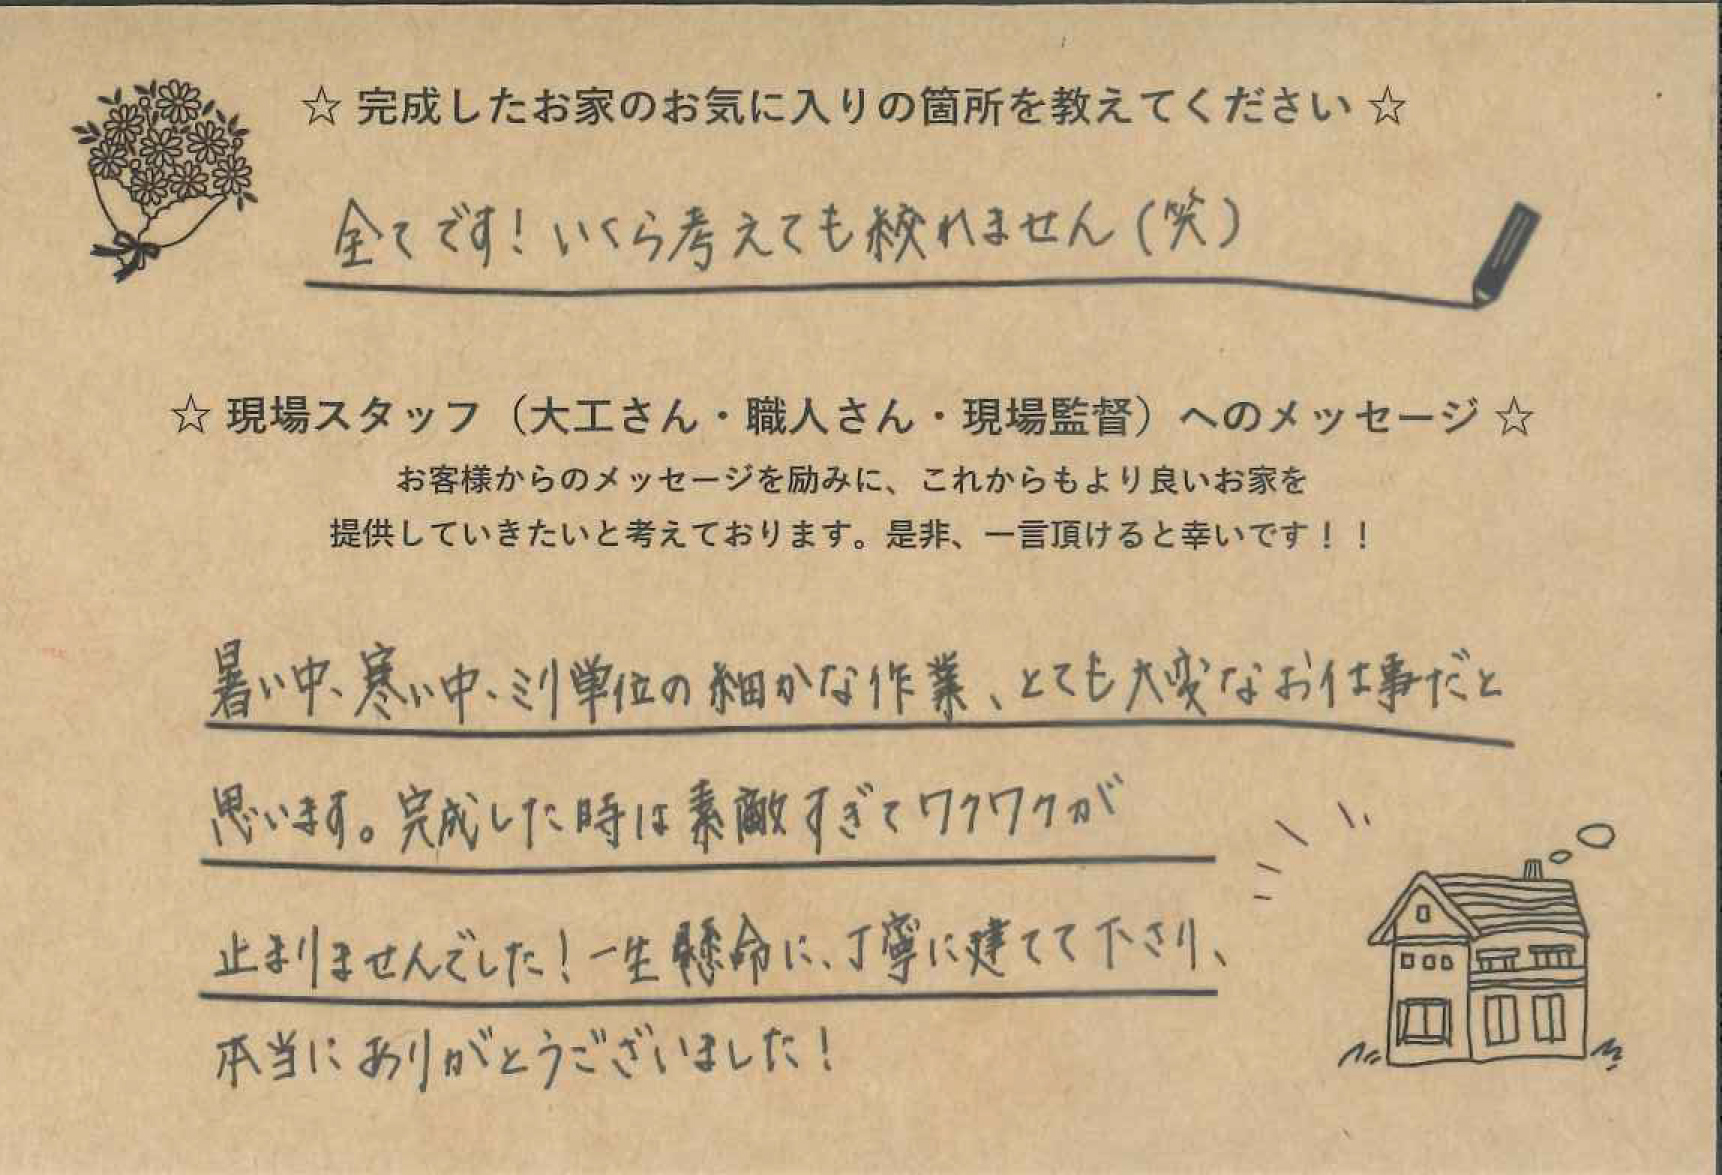 ☆ 完成したお家のお気に入りの箇所を教えてください ☆
全てです！いくら考えても絞れません(笑)
☆ 現場スタッフ（大工さん・職人さん・現場監督）へのメッセージ ☆
お客様からのメッセージを励みに、これからもより良いお家を
提供していきたいと考えております。是非、一言頂けると幸いです！！
暑い中、寒い中、ミリ単位の細かな作業、とても大変なお仕事だと
思います。完成した時は素敵すぎてワクワクが
止まりませんでした！一生懸命に、丁寧に建てて下さり、
本当にありがとうございました！